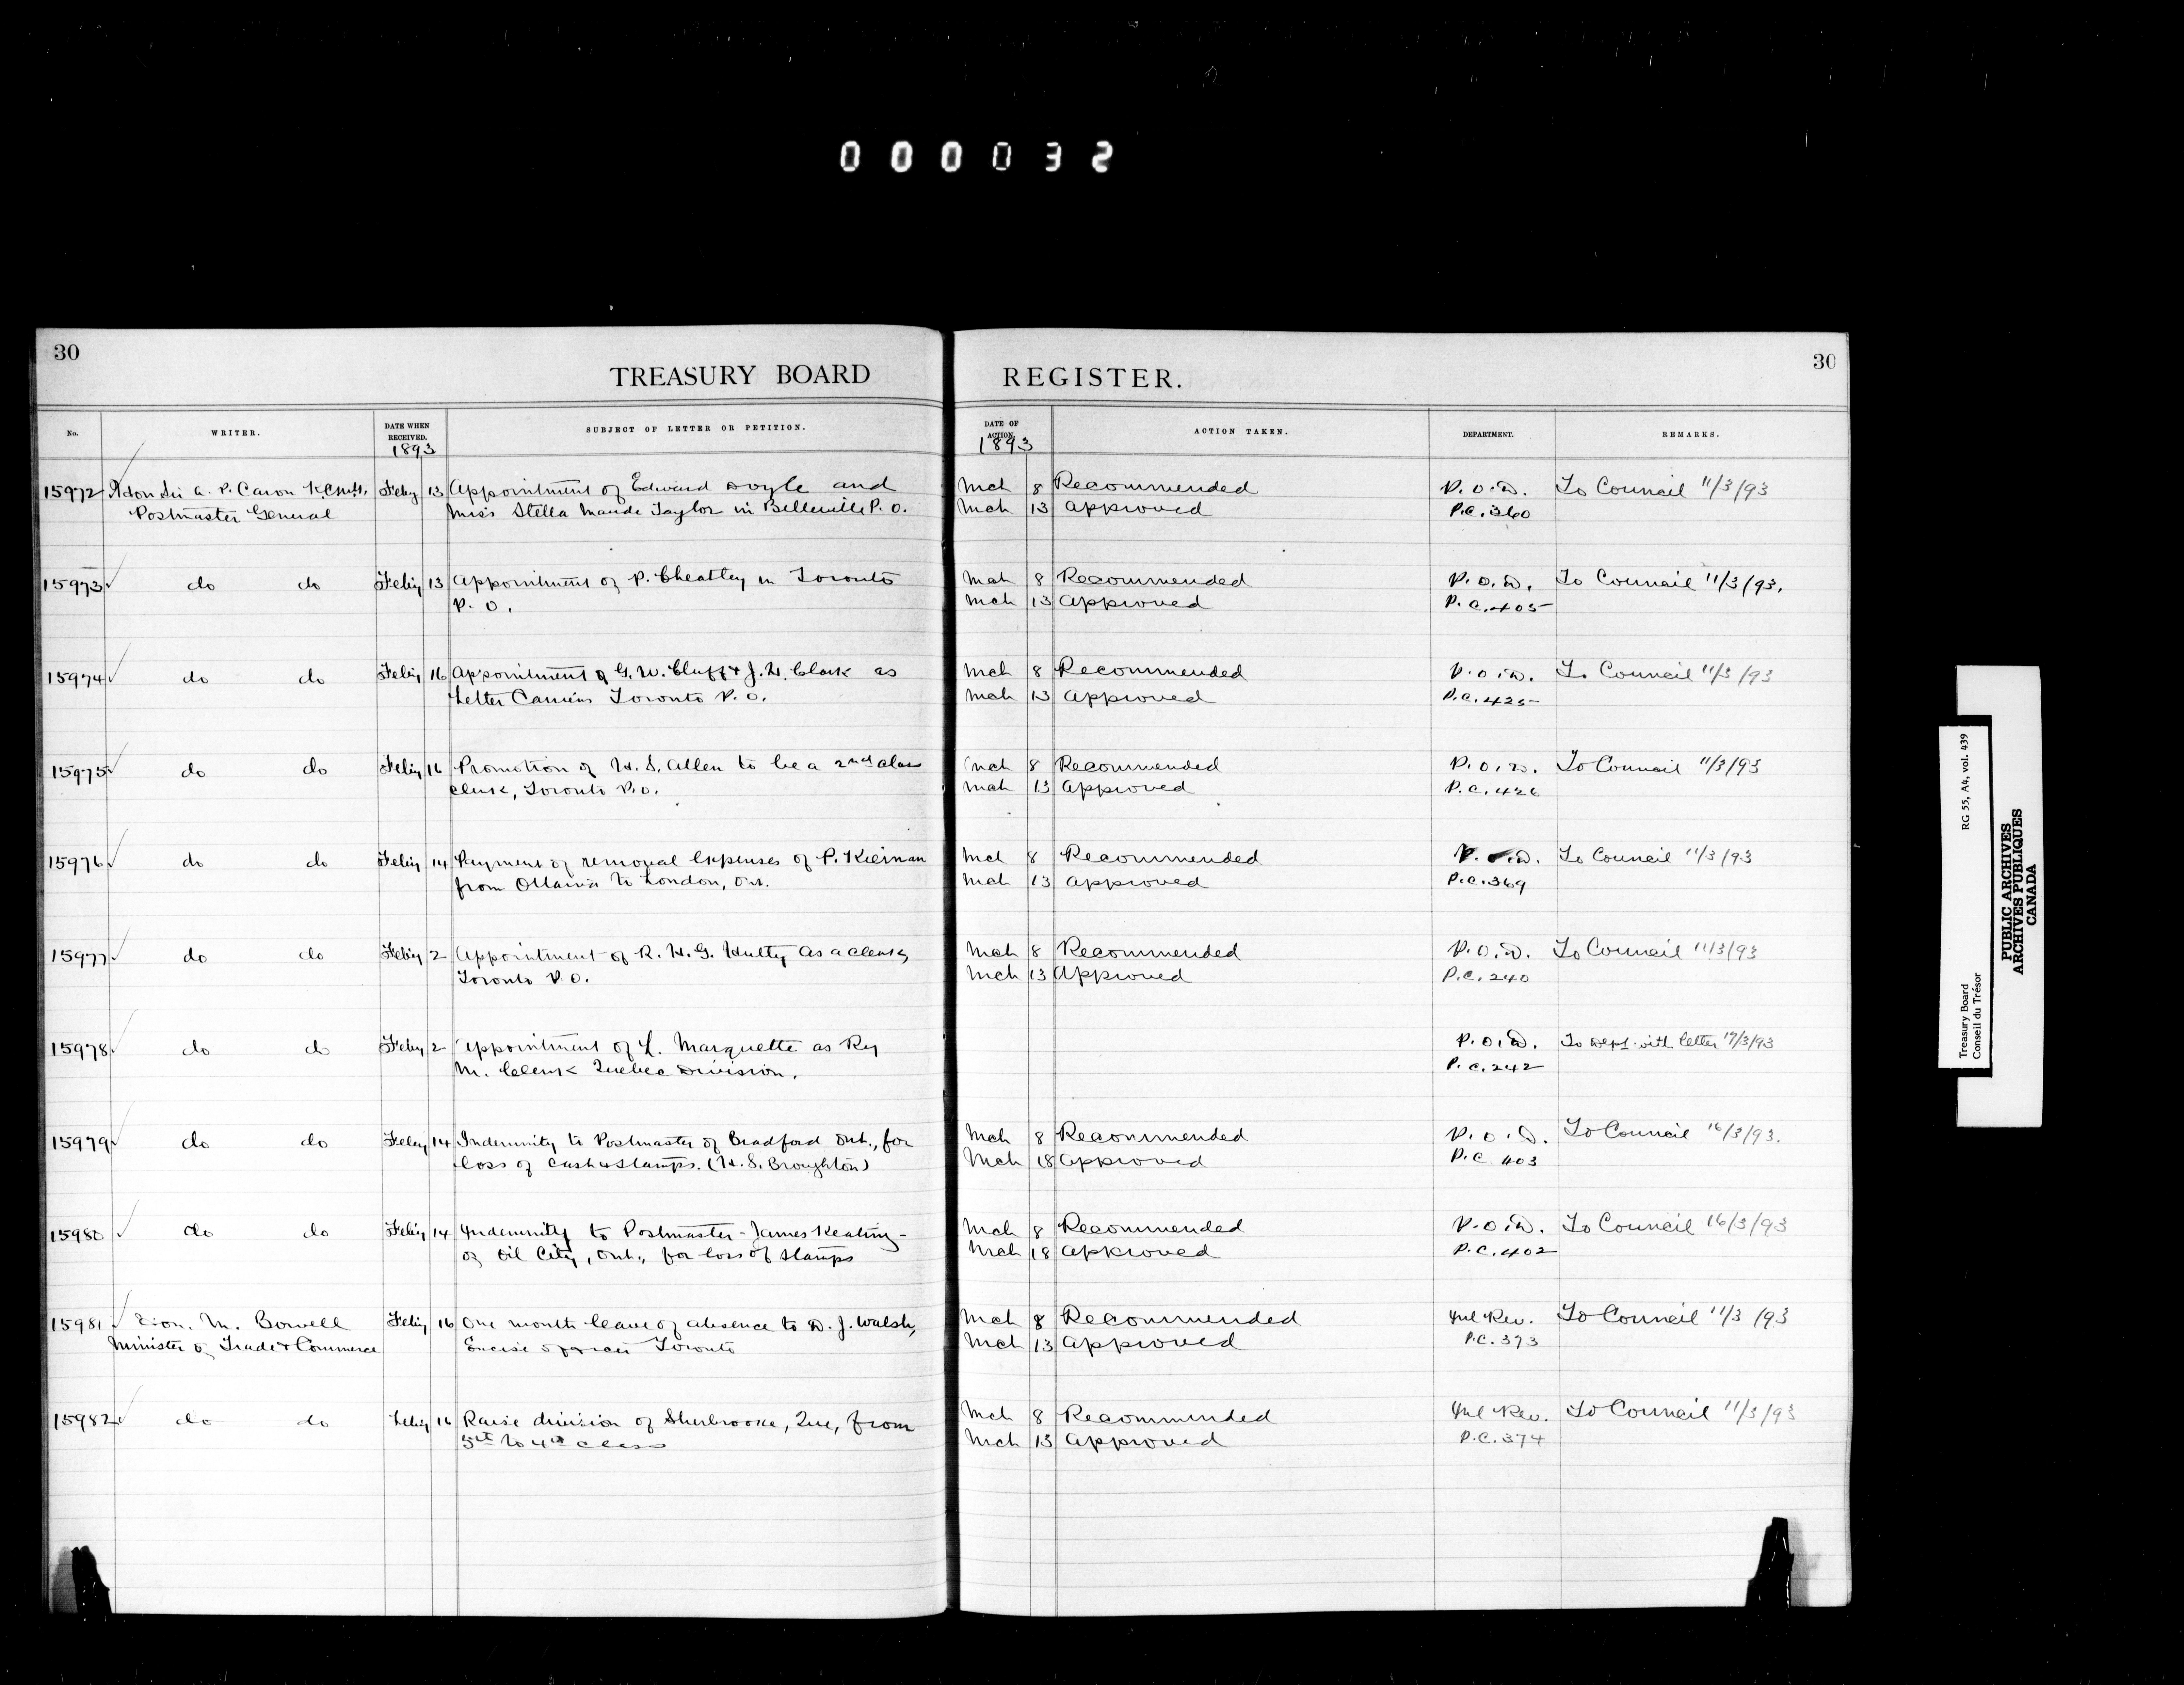 000032
30
TREASURY BOARD
REGISTER.
30
No.
WRITER.
DATE WHEN RECEIVED.
1893
SUBJECT OF LETTER OR PETITION.
DATE OF ACTION.
1893
ACTION TAKEN.
DEPARTMENT.
REMARKS.
15972 Hon Sir A. P. Caron K.C.M.G. Feby 13 Appointment of Edward Doyle and Mch 8 Recommended P.O.D. To Council 11/3/93
Postmaster General Miss Stella Maude Taylor in Belleville P.O. Mch 13 Approved P.C. 360
15973 do do Feby 13 Appointment of P. Cheatley in Toronto Mch 8 Recommended P.O.D. To Council 11/3/93.
P.O. Mch 13 Approved P.C. 405
15974 do do Feby 16 Appointment of G. W. Cluff & J. H. Clark as Mch 8 Recommended P.O.D. To Council 11/3/93
Letter Carriers Toronto P.O. Mch 13 Approved P.C. 425
15975 do do Feby 16 Promotion of H. S. Allen to be a 2nd class Mch 8 Recommended P.O.D. To Council 11/3/93
clerk, Toronto P.O. Mch 13 Approved P.C. 426
15976 do do Feby 14 Payment of removal Expenses of P. Kiernan Mch 8 Recommended P.O.D. To Council 11/3/93
from Ottawa to London, Ont. Mch 13 Approved P.C. 369
15977 do do Feby 2 Appointment of R. H. G. Hutty as a clerk, Mch 8 Recommended P.O.D. To Council 11/3/93
Toronto P.O. Mch 13 Approved P.C. 240
15978 do do Feby 2 Appointment of L. Marquette as Ry P.O.D. To Dept. with letter 17/3/93
M. Clerk Quebec Division. P.C. 242
15979 do do Feby 14 Indemnity to Postmaster of Bradford Ont., for Mch 8 Recommended P.O.D. To Council 16/3/93.
loss of cash & stamps. (H. S. Broughton) Mch 18 Approved P.C. 403
15980 do do Feby 14 Indemnity to Postmaster - James Keating - Mch 8 Recommended P.O.D. To Council 16/3/93
of Oil City, Ont., for loss of stamps Mch 18 Approved P.C. 402
15981 Hon. M. Bowell Feby 16 One month leave of absence to D. J. Walsh, Mch 8 Recommended Inl Rev. To Council 11/3/93
Minister of Trade & Commerce Excise officer Toronto Mch 13 Approved P.C. 373
15982 do do Feby 16 Raise division of Sherbrooke, Que, from Mch 8 Recommended Inl Rev. To Council 11/3/93
5th to 4th class Mch 13 Approved P.C. 374
Treasury Board RG 55, A4, vol. 439
Conseil du Trésor
PUBLIC ARCHIVES
ARCHIVES PUBLIQUES
CANADA